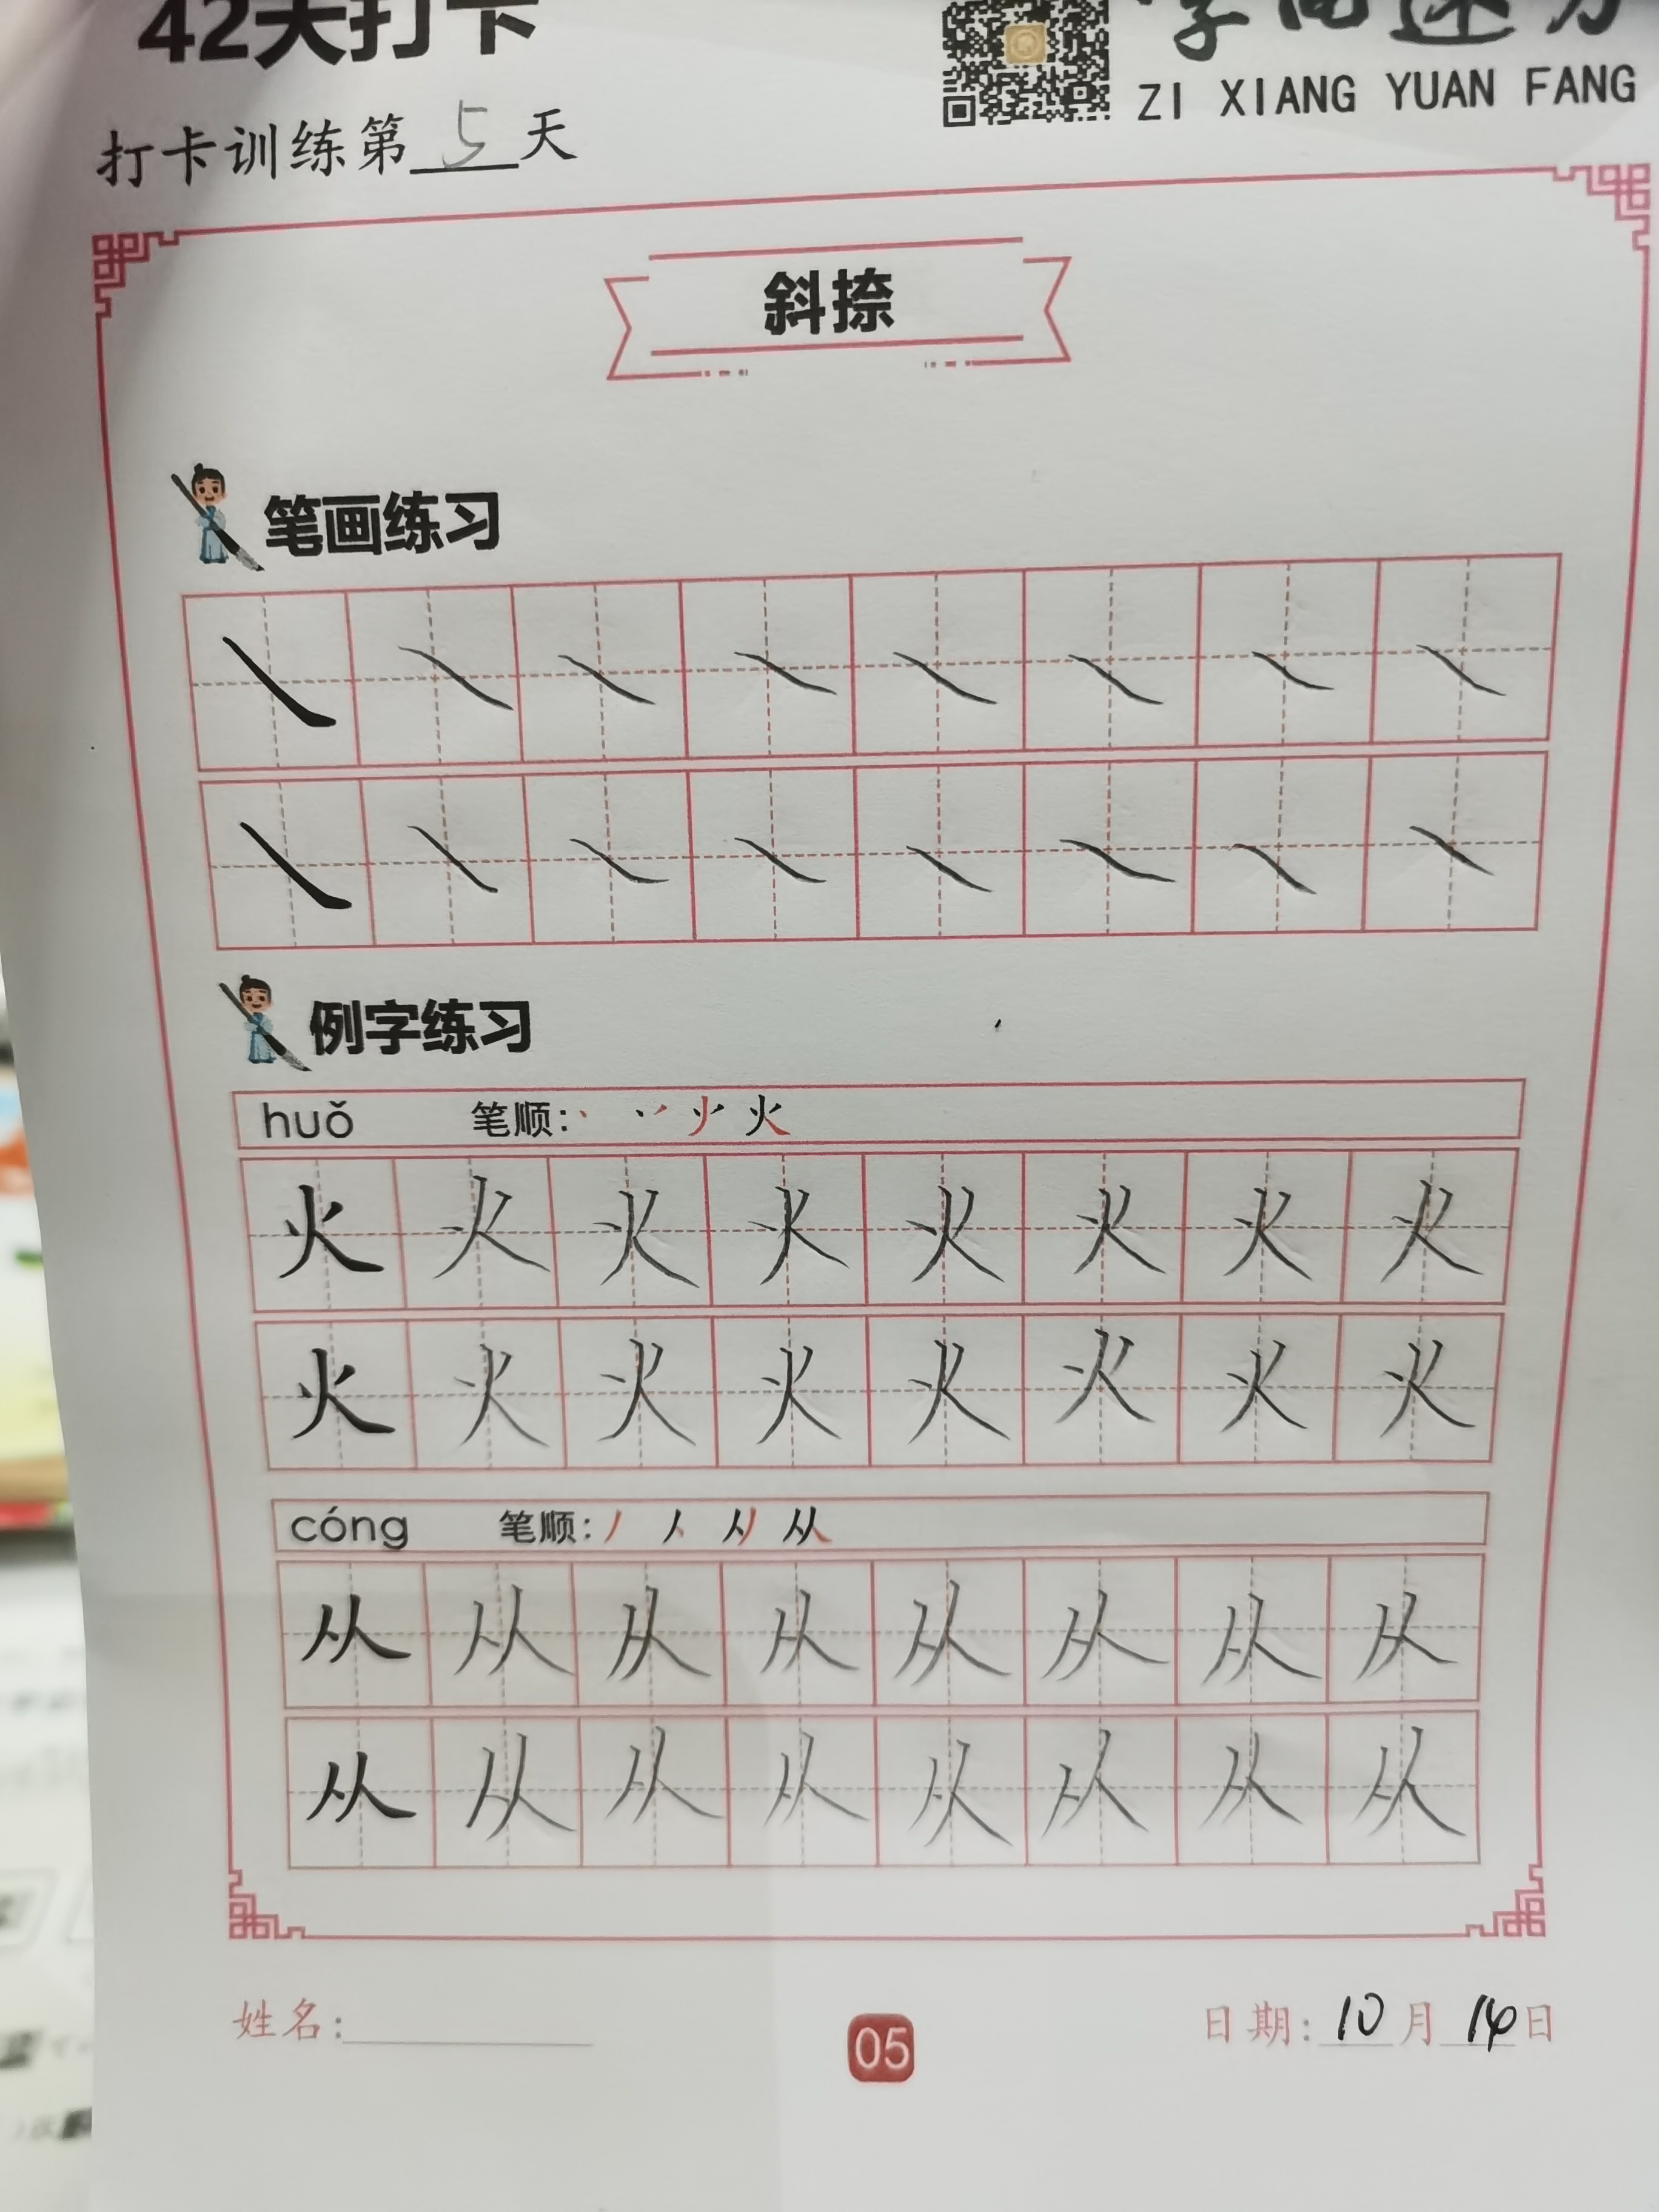 42天打卡
字向远方
ZI XIANG YUAN FANG
打卡训练第5天
斜捺
笔画练习
例字练习
huǒ 笔顺:
火 火 火 火 火 火 火 火
火 火 火 火 火 火 火 火
cóng 笔顺:
从 从 从 从 从 从 从 从
从 从 从 从 从 从 从 从
姓名:
05
日期: 10月14日